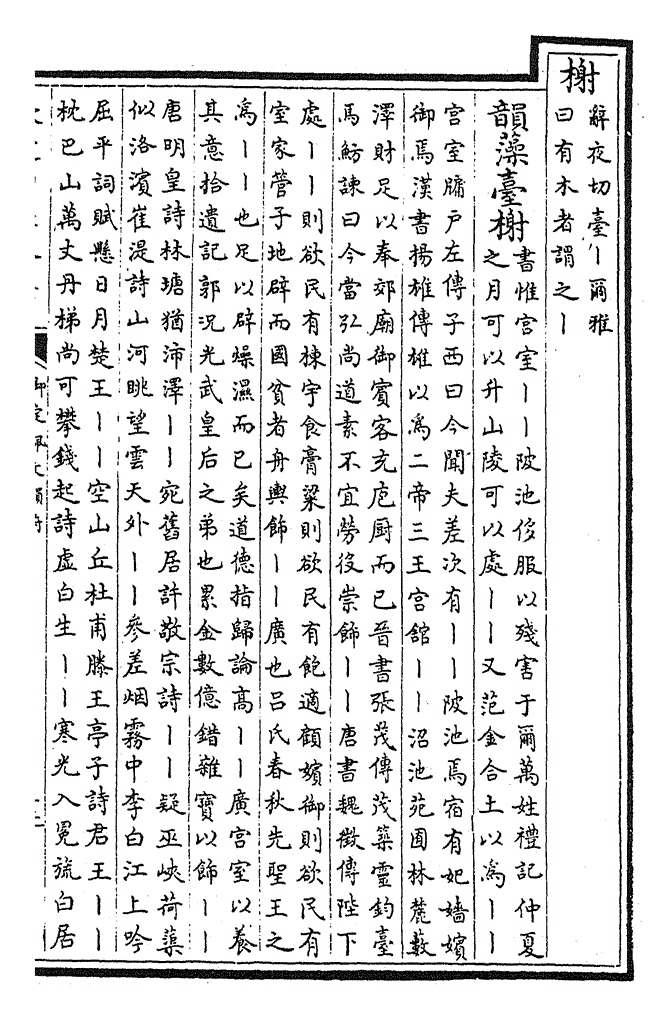 榭
辭夜切臺丨爾雅
曰有木者謂之丨
韻藻臺榭
書惟宮室丨丨陂池侈服以殘害于爾萬姓禮記仲夏
之月可以升山陵可以處丨丨又范金合土以為丨丨
宮室牖戶左傳子西曰今聞夫差次有丨丨陂池焉宿有妃嬙嬪
御焉漢書揚雄傳雄以為二帝三王宮舘丨丨沼池苑囿林麓藪
澤財足以奉郊廟御賓客充庖厨而已晉書張茂傳茂築靈鈞臺
馬魴諫曰今當弘尚道素不宜勞役崇飾丨丨唐書魏徵傳陛下
處丨丨則欲民有棟宇食膏粱則欲民有飽適顧嬪御則欲民有
室家管子地辟而國貧者舟輿飾丨丨廣也吕氏春秋先聖王之
為丨丨也足以辟燥濕而已矣道德指歸論高丨丨廣宮室以養
其意拾遺記郭况光武皇后之弟也累金數億錯雜寶以飾丨丨
唐明皇詩林塘猶沛澤丨丨宛舊居許敬宗詩丨丨疑巫峽荷蕖
似洛濱崔湜詩山河眺望雲天外丨丨參差烟霧中李白江上吟
屈平詞賦懸日月楚王丨丨空山丘杜甫滕王亭子詩君王丨丨
枕巴山萬丈丹梯尚可攀錢起詩虛白生丨丨寒光入冕旒白居
御定佩文韻府